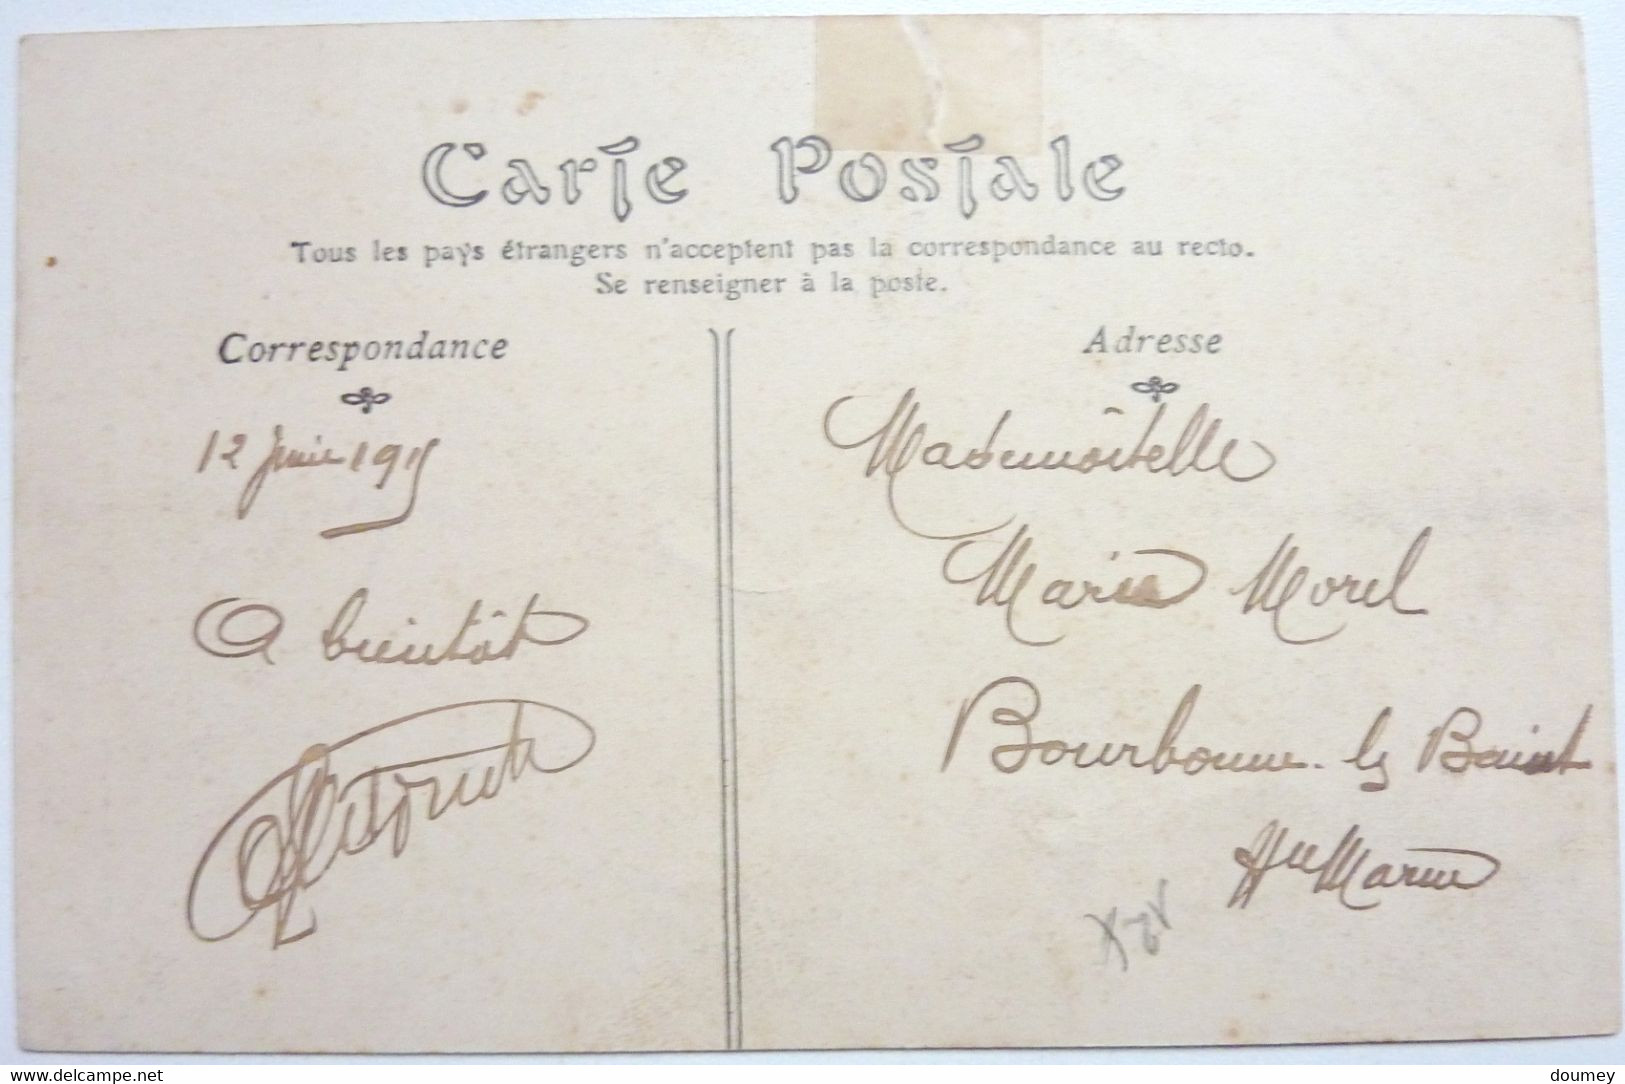 Carte Postale
Tous les pays étrangers n'acceptent pas la correspondance au recto.
Se renseigner à la poste.
Correspondance
Adresse
12 Juin
A bientôt
Mademoiselle
Marie Morel
Bourbonne-les Bains
Hte Marne
delcampe.net
doumey